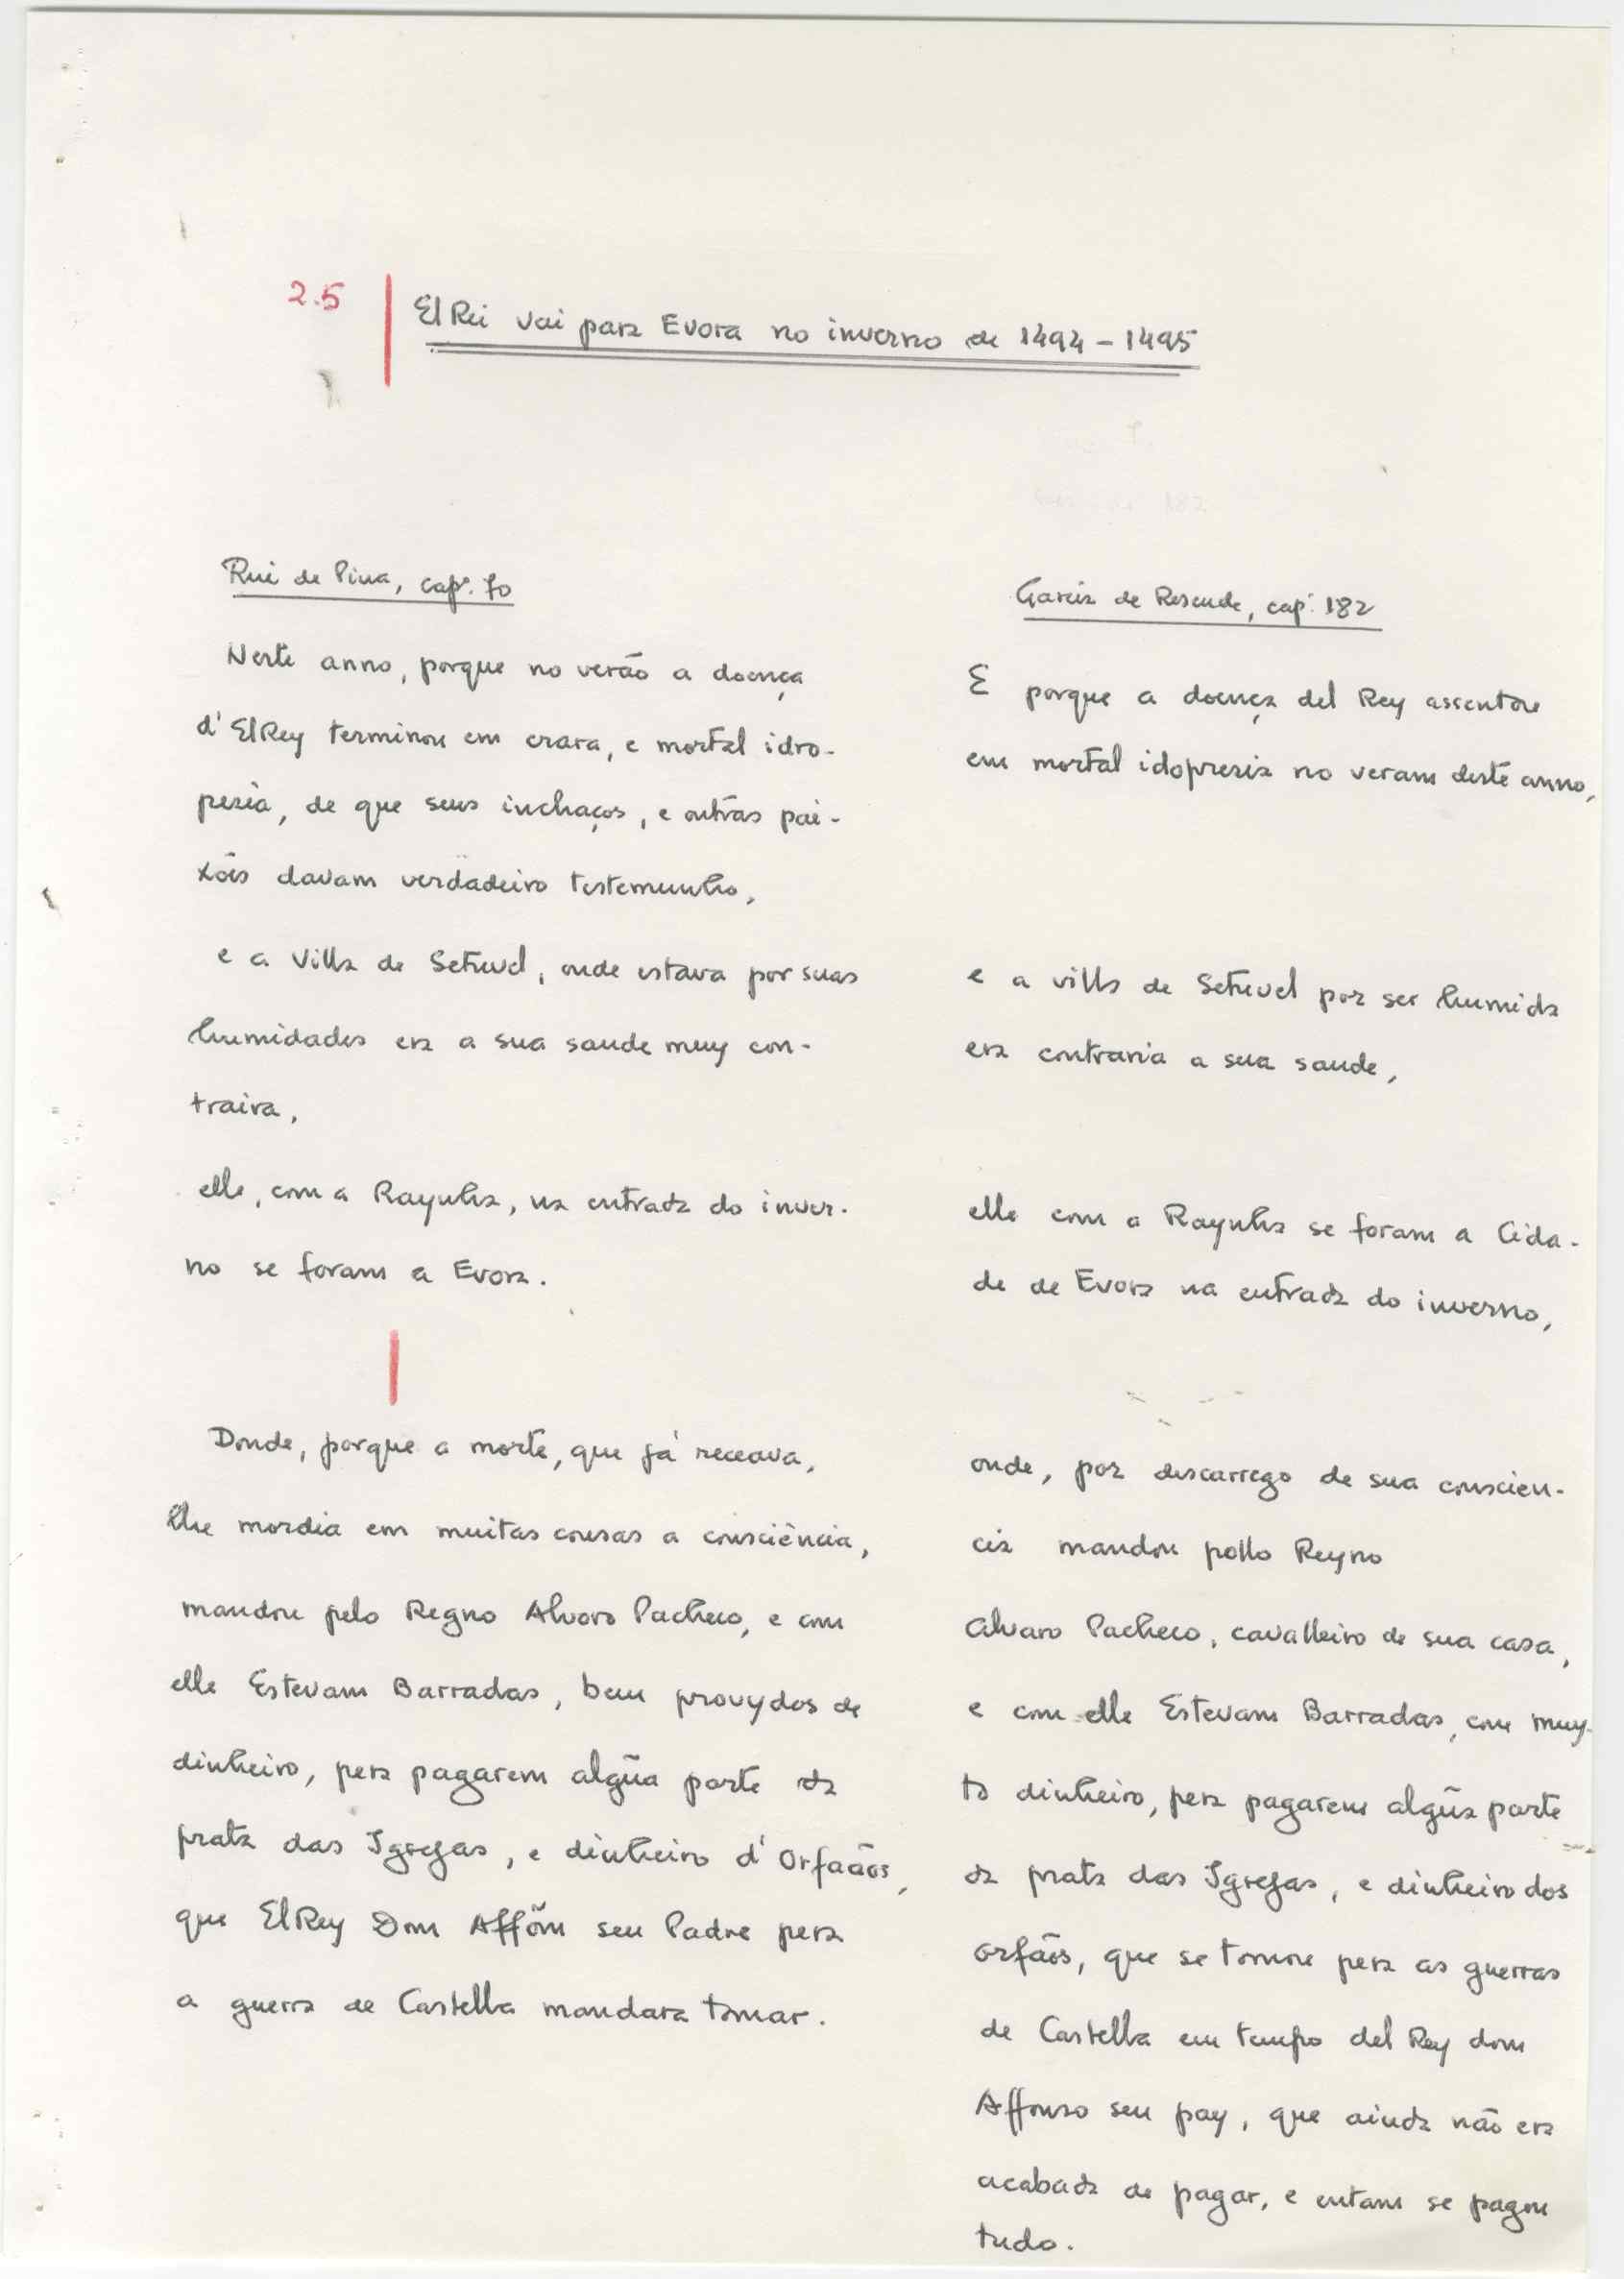 2.5
El Rei vai para Evora no inverno de 1494 - 1495
Rui de Pina, capº. 70
Neste anno, porque no verão a doença
d'ElRey terminou em crara, e mortal idro-
pesia, de que seus inchaços, e outras pai-
xões davam verdadeiro testemunho,
e a Villa de Setuvel, onde estava por suas
humidades era a sua saude muy con-
traira,
elle, com a Raynha, na entrada do inver-
no se foram a Evora.
Donde, porque a morte, que já receava,
lhe mordia em muitas cousas a consciência,
mandou pelo Regno Alvoro Pacheco, e com
elle Estevam Barradas, bem provydos de
dinheiro, pera pagarem algũa parte da
prata das Igrejas, e dinheiro d'Orfaãos,
que ElRey Dom Affõm seu Padre pera
a guerra de Castella mandara tomar.
Garcia de Resende, cap. 182
E porque a doença del Rey assentou
em mortal idopresia no veram deste anno,
e a villa de Setuvel por ser humida
era contraria a sua saude,
elle com a Raynha se foram a Cida-
de de Evora na entrada do inverno,
onde, por descarrego de sua conscien-
cia mandou pollo Reyno
Alvaro Pacheco, cavalleiro de sua casa,
e com elle Estevam Barradas, com muy-
to dinheiro, pera pagarem algũa parte
da prata das Igrejas, e dinheiro dos
orfãos, que se tomou pera as guerras
de Castella em tempo del Rey dom
Affonso seu pay, que ainda não era
acabada de pagar, e entam se pagou
tudo.